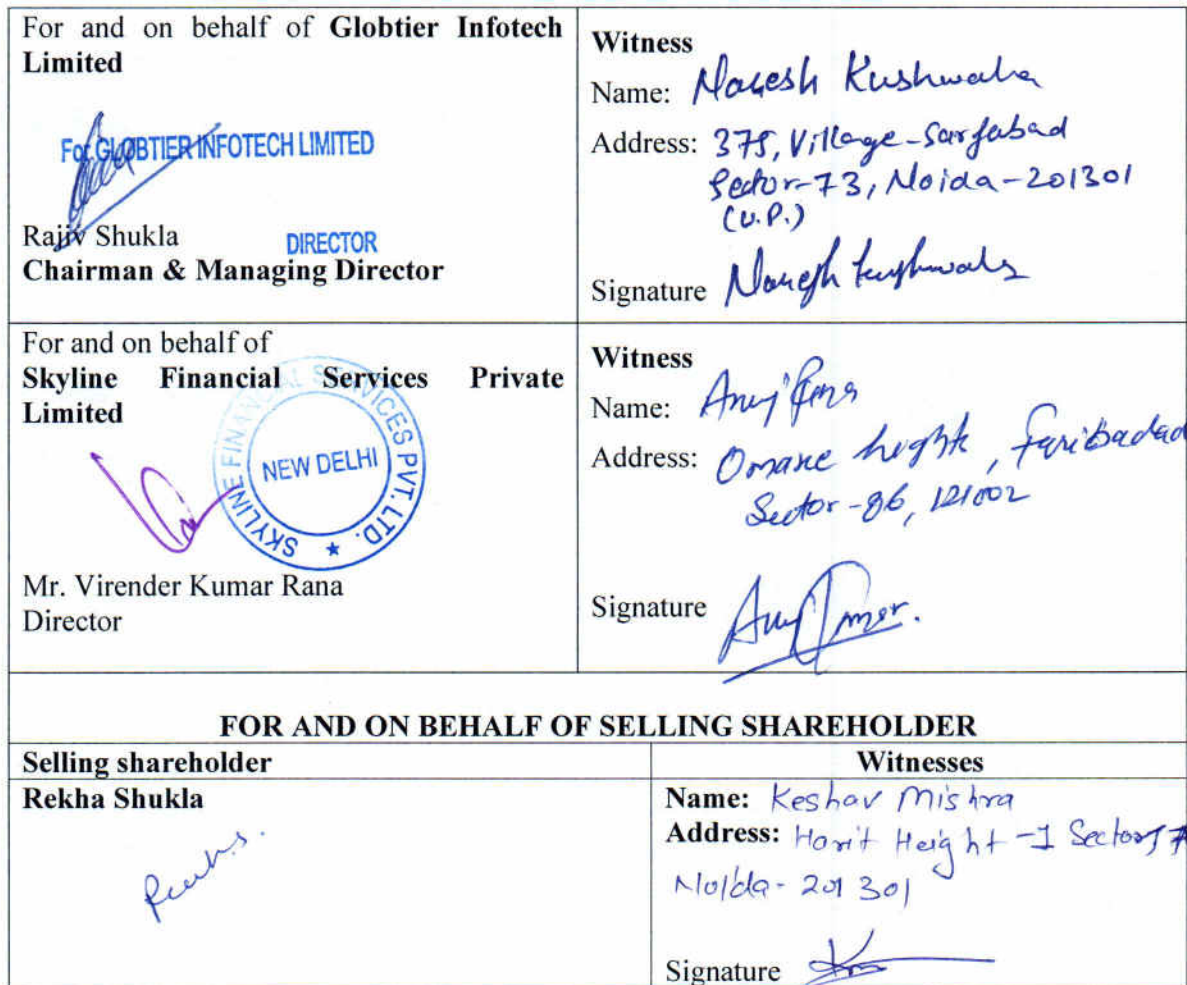 For and on behalf of Globtier Infotech
Limited
For GLOBTIER INFOTECH LIMITED
Rajiv Shukla
DIRECTOR
Chairman & Managing Director
Witness
Name: Naresh Kushwaha
Address: 375, Village-Sarfabad
Sector-73, Noida-201301
(U.P.)
Signature Naresh Kushwaha
For and on behalf of
Skyline Financial Services Private
Limited
SKYLINE FINANCIAL SERVICES PVT. LTD. ★
NEW DELHI
Mr. Virender Kumar Rana
Director
Witness
Name: Anuj
Address: Omaxe height, Faribadad
Sector-86, 121002
Signature Anuj
FOR AND ON BEHALF OF SELLING SHAREHOLDER
Selling shareholder
Rekha Shukla
Witnesses
Name: Keshav Mishra
Address: Harit Height -I Sector
Noida- 201301
Signature